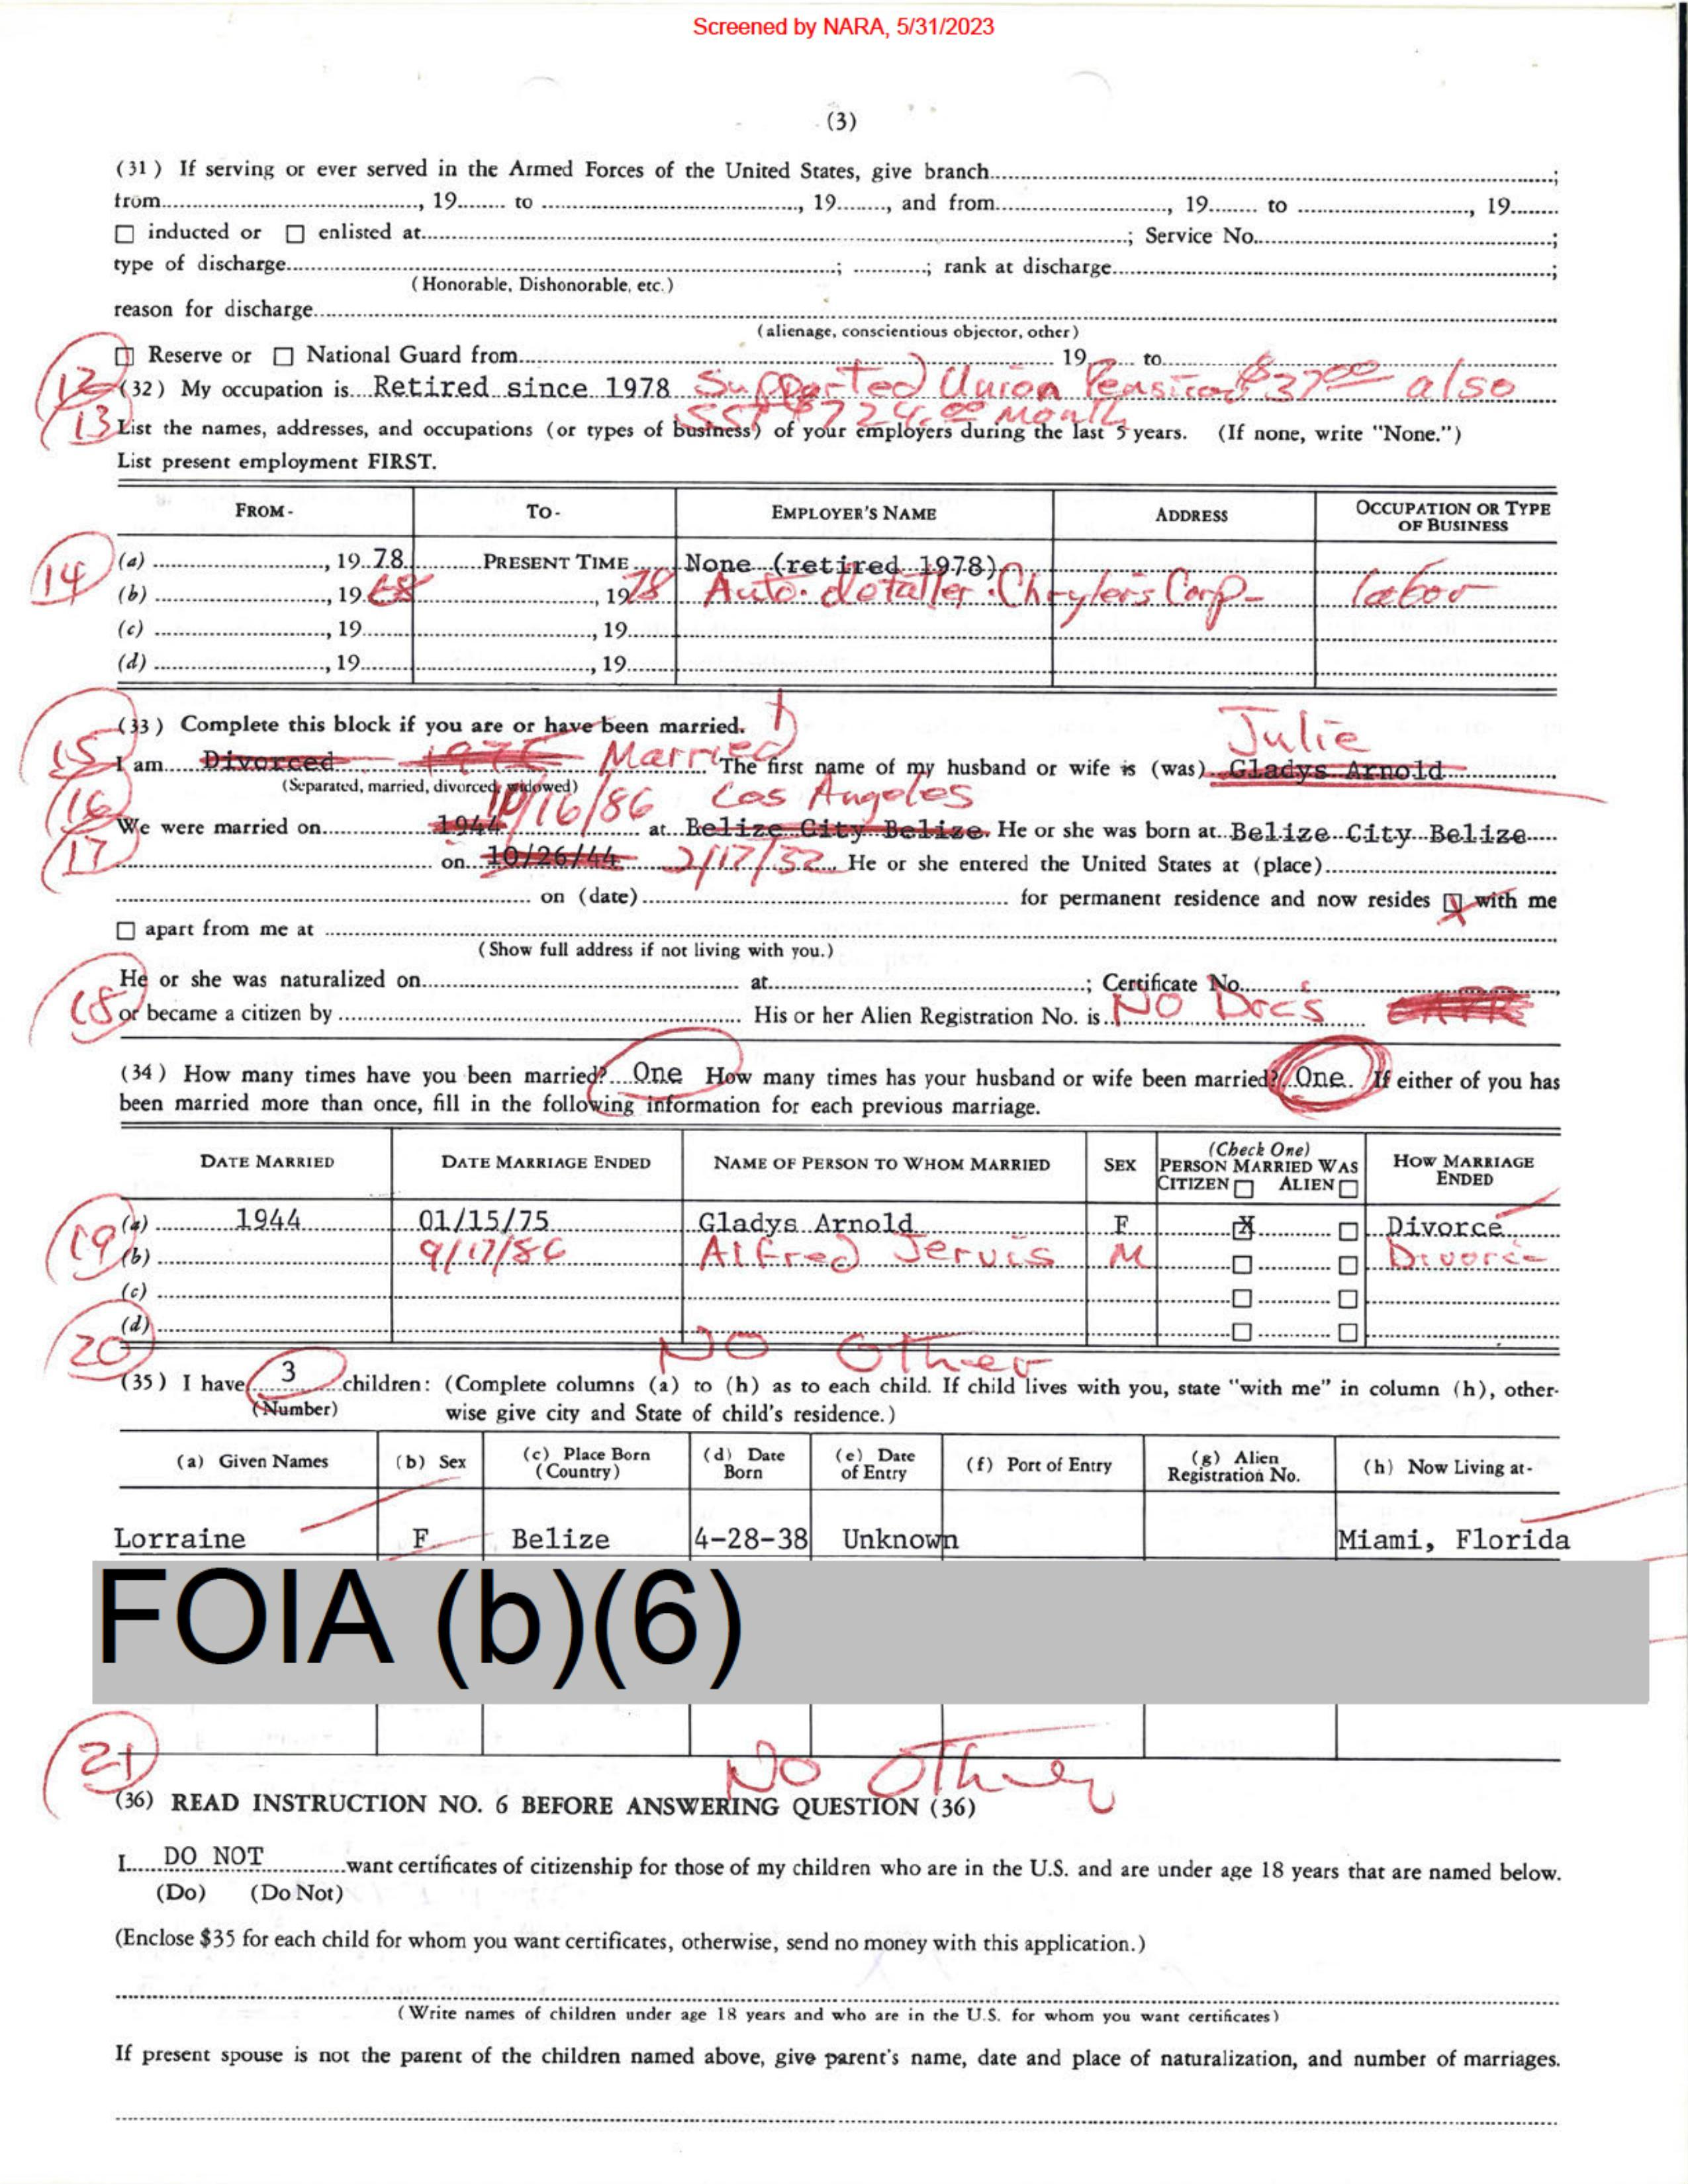 Screened by NARA, 5/31/2023
(3)
(31) If serving or ever served in the Armed Forces of the United States, give branch ;
from , 19 to , 19 , and from , 19 to , 19
☐ inducted or ☐ enlisted at ; Service No. ;
type of discharge ; ; rank at discharge ;
(Honorable, Dishonorable, etc.)
reason for discharge
(alienage, conscientious objector, other)
☐ Reserve or ☐ National Guard from 19 to
12 (32) My occupation is Retired since 1978 Supported Union Pension $37.00 also
SSI $724.00 Month
13 List the names, addresses, and occupations (or types of business) of your employers during the last 5 years. (If none, write "None.")
List present employment FIRST.
FROM- TO- EMPLOYER'S NAME ADDRESS OCCUPATION OR TYPE OF BUSINESS
14 (a) , 19 78 PRESENT TIME None (retired 1978)
(b) , 19 68 , 19 78 Auto. detailer. Corp- labor
(c) , 19 , 19
(d) , 19 , 19
(33) Complete this block if you are or have been married. Julie
15 I am Divorced 1975 Married The first name of my husband or wife is (was) Gladys Arnold
(Separated, married, divorced, widowed) 10/16/86 Los Angeles
16 We were married on 1944 at Belize City Belize. He or she was born at Belize City Belize
17 on 10/26/44 2/17/32 He or she entered the United States at (place)
on (date) for permanent residence and now resides ☒ with me
☐ apart from me at
(Show full address if not living with you.)
He or she was naturalized on at ; Certificate No. ,
18 or became a citizen by His or her Alien Registration No. is NO Doc's
(34) How many times have you been married? One How many times has your husband or wife been married? One. If either of you has
been married more than once, fill in the following information for each previous marriage.
DATE MARRIED DATE MARRIAGE ENDED NAME OF PERSON TO WHOM MARRIED SEX (Check One) PERSON MARRIED WAS CITIZEN ☐ ALIEN ☐ HOW MARRIAGE ENDED
19 (a) 1944 01/15/75 Gladys Arnold F ☒ ☐ Divorce
(b) 9/17/86 Alfred Jervis M ☐ ☐ Divorce
(c) ☐ ☐
(d) ☐ ☐
20 NO Other
(35) I have 3 children: (Complete columns (a) to (h) as to each child. If child lives with you, state "with me" in column (h), other-
(Number) wise give city and State of child's residence.)
(a) Given Names (b) Sex (c) Place Born (Country) (d) Date Born (e) Date of Entry (f) Port of Entry (g) Alien Registration No. (h) Now Living at-
Lorraine F Belize 4-28-38 Unknown Miami, Florida
FOIA (b)(6)
21 NO Other
(36) READ INSTRUCTION NO. 6 BEFORE ANSWERING QUESTION (36)
I DO NOT want certificates of citizenship for those of my children who are in the U.S. and are under age 18 years that are named below.
(Do) (Do Not)
(Enclose $35 for each child for whom you want certificates, otherwise, send no money with this application.)
(Write names of children under age 18 years and who are in the U.S. for whom you want certificates)
If present spouse is not the parent of the children named above, give parent's name, date and place of naturalization, and number of marriages.